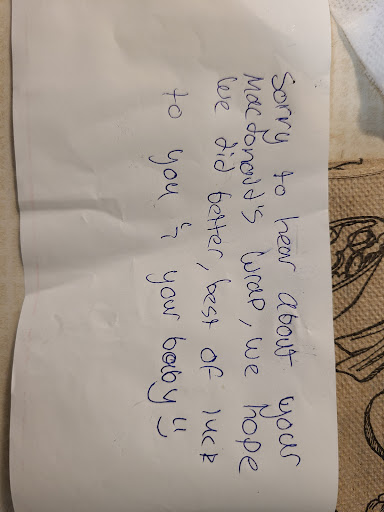 Sorry to hear about your
Macdonald's wrap, we hope
we did better, best of luck
to you & your baby :)